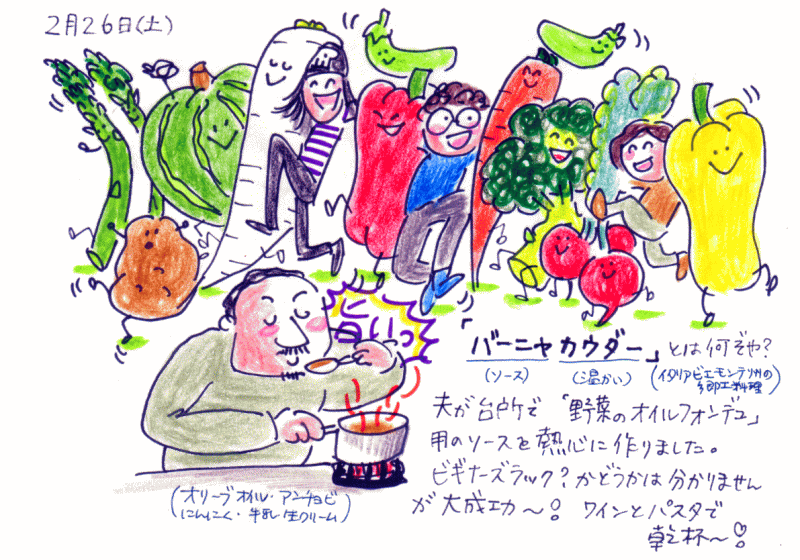 2月26日(土)
旨いっ
「バーニャカウダー」とは何ぞや?
(ソース) (温かい) (イタリアピエモンテ州の
郷土料理)
夫が台所で「野菜のオイルフォンデュ」
用のソースを熱心に作りました。
ビギナーズラック?かどうかは分かりません
が大成功〜! ワインとパスタで
乾杯〜!
(オリーブオイル・アンチョビ
にんにく・牛乳・生クリーム)